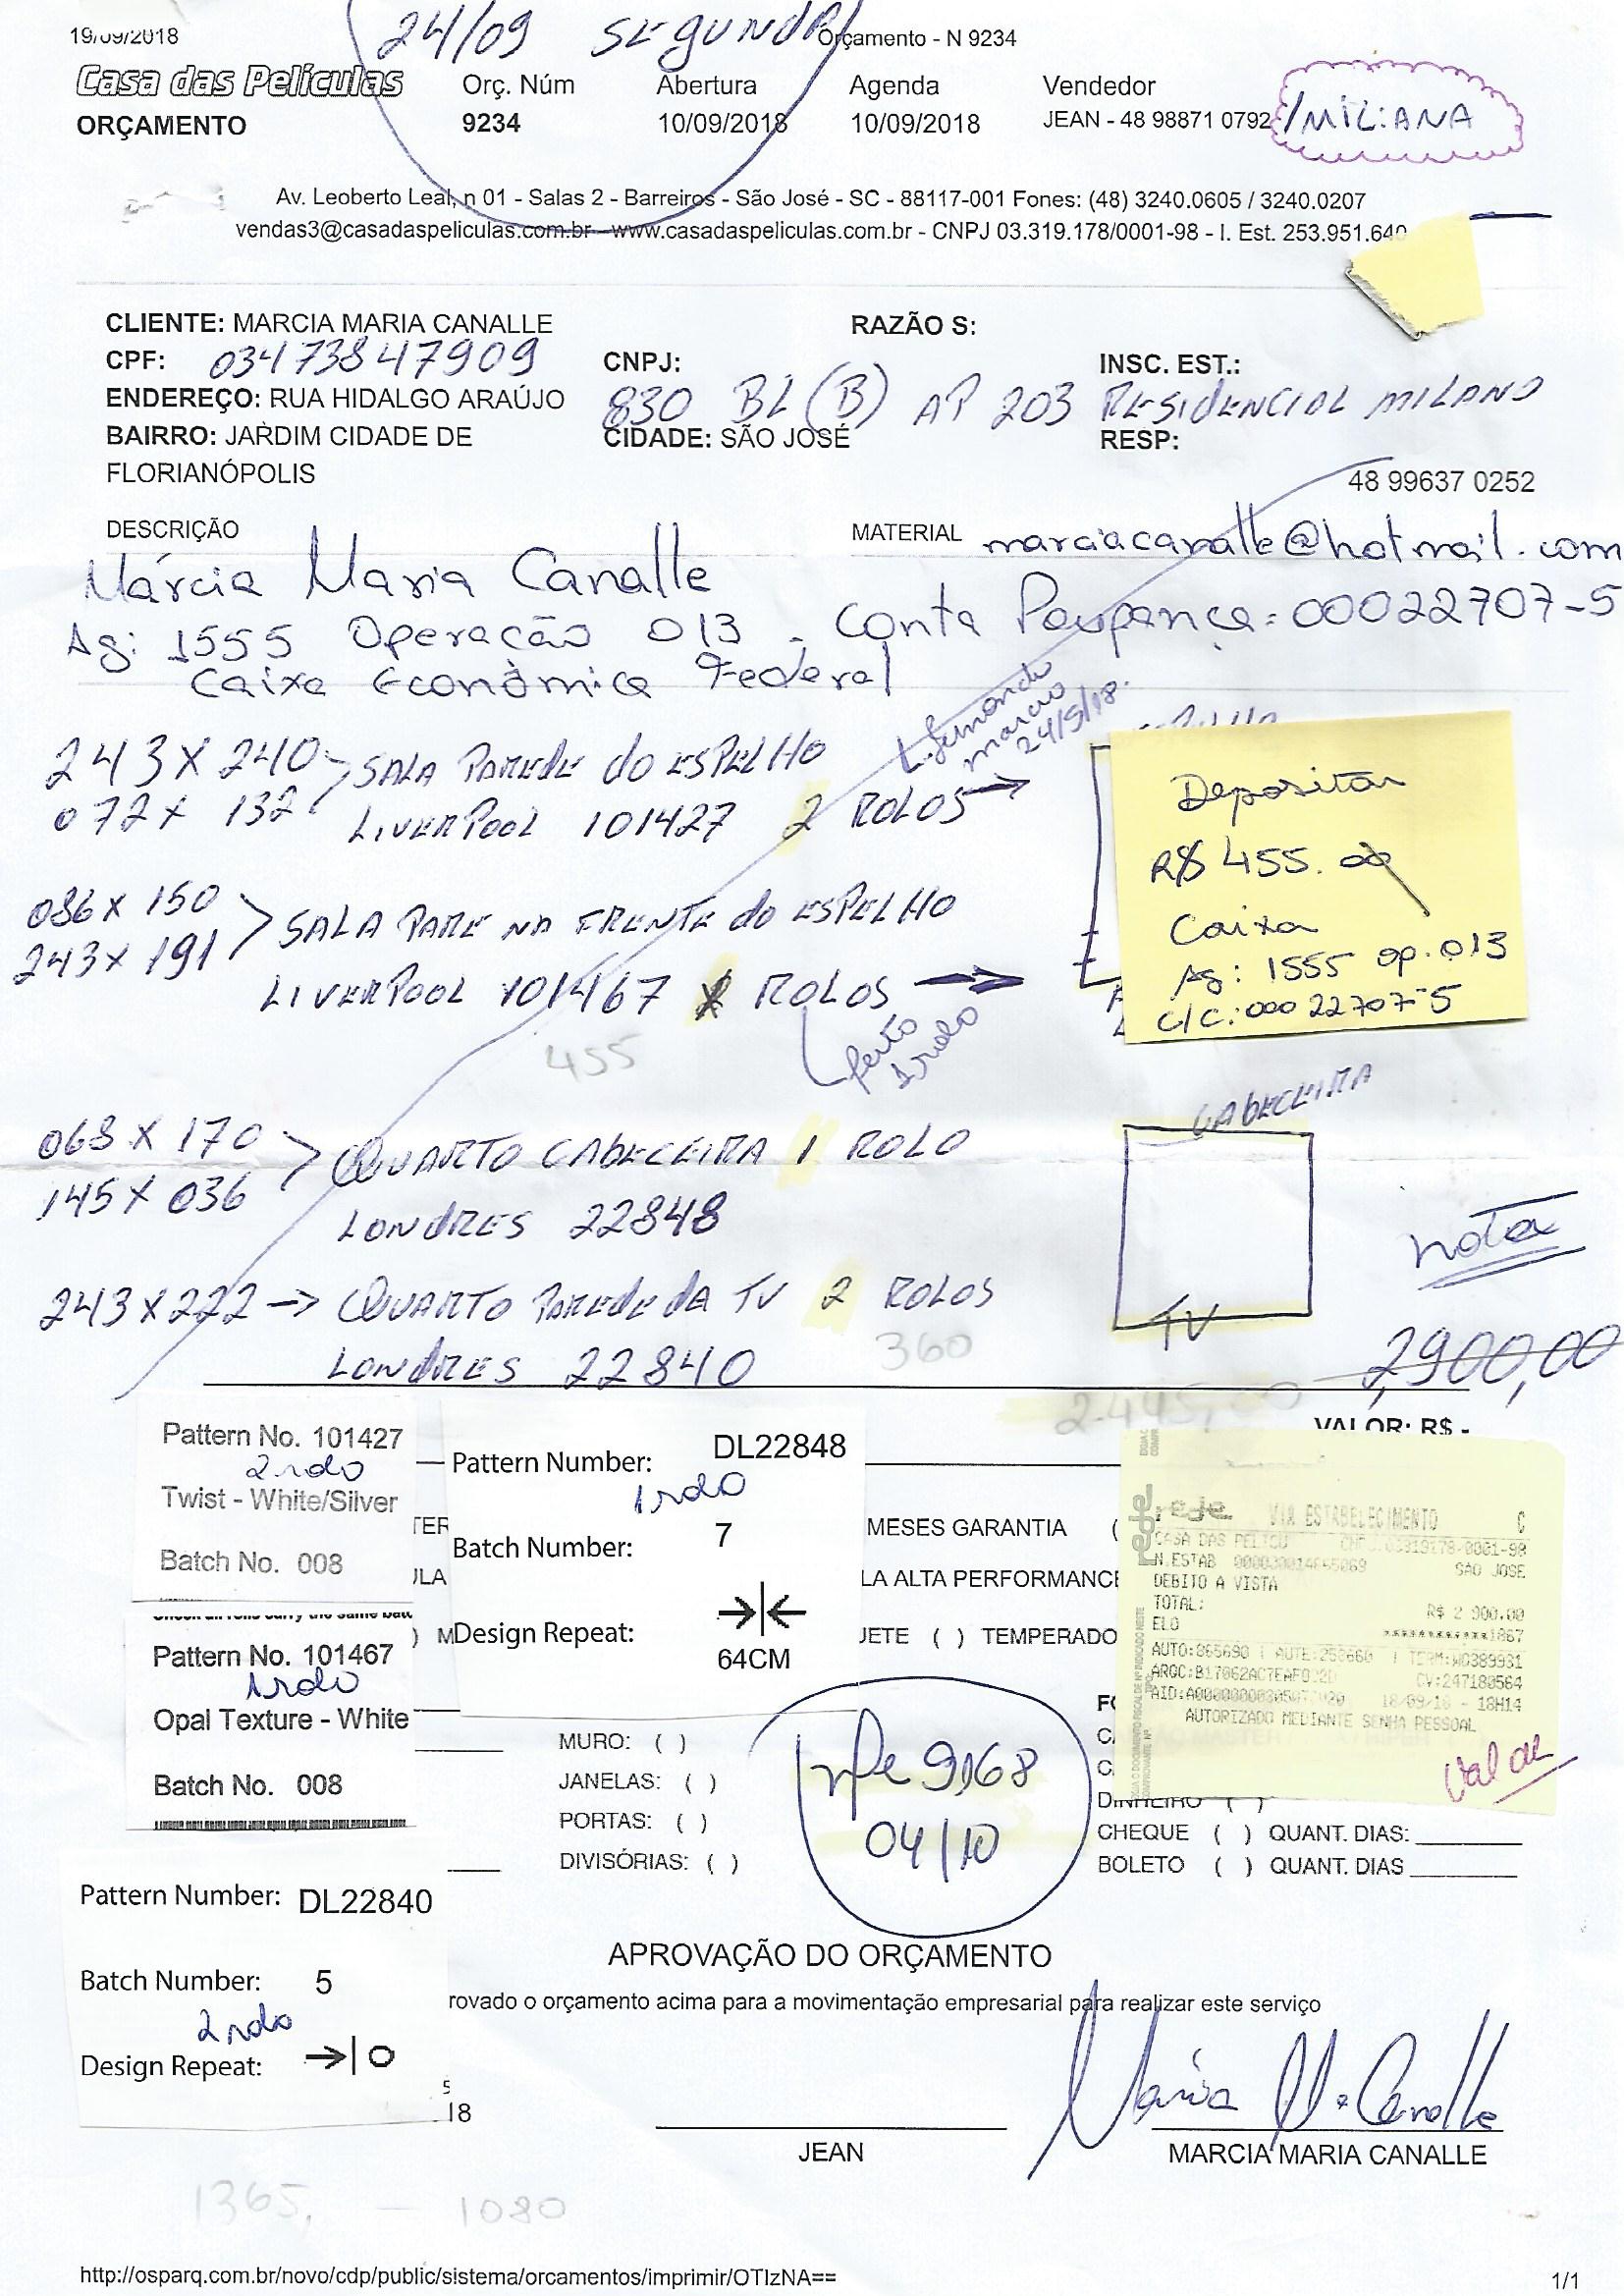 19/09/2018
24/09 SEGUNDA
Orçamento - N 9234
Casa das Películas
Orç. Núm Abertura Agenda Vendedor
ORÇAMENTO
9234 10/09/2018 10/09/2018 JEAN - 48 98871 0792
/MILIANA
Av. Leoberto Leal, n 01 - Salas 2 - Barreiros - São José - SC - 88117-001 Fones: (48) 3240.0605 / 3240.0207
vendas3@casadaspeliculas.com.br - www.casadaspeliculas.com.br - CNPJ 03.319.178/0001-98 - I. Est. 253.951.640
CLIENTE: MARCIA MARIA CANALLE RAZÃO S:
CPF: 03473847909 CNPJ: INSC. EST.:
ENDEREÇO: RUA HIDALGO ARAÚJO 830 BL (B) AP 203 RESIDENCIAL MILANO
BAIRRO: JARDIM CIDADE DE CIDADE: SÃO JOSÉ RESP:
FLORIANÓPOLIS
48 99637 0252
DESCRIÇÃO MATERIAL marciacanalle@hotmail.com
Márcia Maria Canalle
Ag: 1555 Operação 013 - Conta Poupança: 00022707-5
Caixa Econômica Federal
Fernando
marcio
24/9/18.
243 X 240 SALA PAREDE do ESPELHO
072 X 132 LIVERPOOL 101427 2 ROLOS
Depositar
R$ 455.00
Caixa
Ag: 1555 op. 013
C/C: 000 22707-5
086 X 150 SALA PARE NA FRENTE do ESPELHO
243 X 191
LIVERPOOL 101467 ROLOS
455
feito
1 rolo
CABECEIRA
068 X 170 QUARTO CABECEIRA 1 ROLO
145 X 036
LONDRES 22848
nota
243 X 222 → QUARTO PAREDE DA TV 2 ROLOS
TV
360
LONDRES 22840
2,900,00
2.445,00
VALOR: R$ -
Pattern No. 101427
2 rolo
Twist - White/Silver
Batch No. 008
Pattern Number: DL22848
1 rolo
Batch Number: 7
Design Repeat:
64CM
MESES GARANTIA (
LA ALTA PERFORMANCE
JETE ( ) TEMPERADO
rede VIA ESTABELECIMENTO C
CASA DAS PELICU
SAO JOSE
DEBITO A VISTA
TOTAL: R$ 2 900,00
ELO
CV:247180564
18H14
AUTORIZADO MEDIANTE SENHA PESSOAL
Valor
Pattern No. 101467
1 rolo
Opal Texture - White
Batch No. 008
MURO: ( )
JANELAS: ( )
PORTAS: ( )
DIVISÓRIAS: ( )
nfe 9168
04/10
DINHEIRO ( )
CHEQUE ( ) QUANT. DIAS:
BOLETO ( ) QUANT. DIAS
Pattern Number: DL22840
Batch Number: 5
2 rolo
Design Repeat: →|0
5
18
APROVAÇÃO DO ORÇAMENTO
rovado o orçamento acima para a movimentação empresarial para realizar este serviço
Márcia M. Canalle
JEAN MARCIA MARIA CANALLE
1365, - 1080
http://osparq.com.br/novo/cdp/public/sistema/orcamentos/imprimir/OTIzNA== 1/1